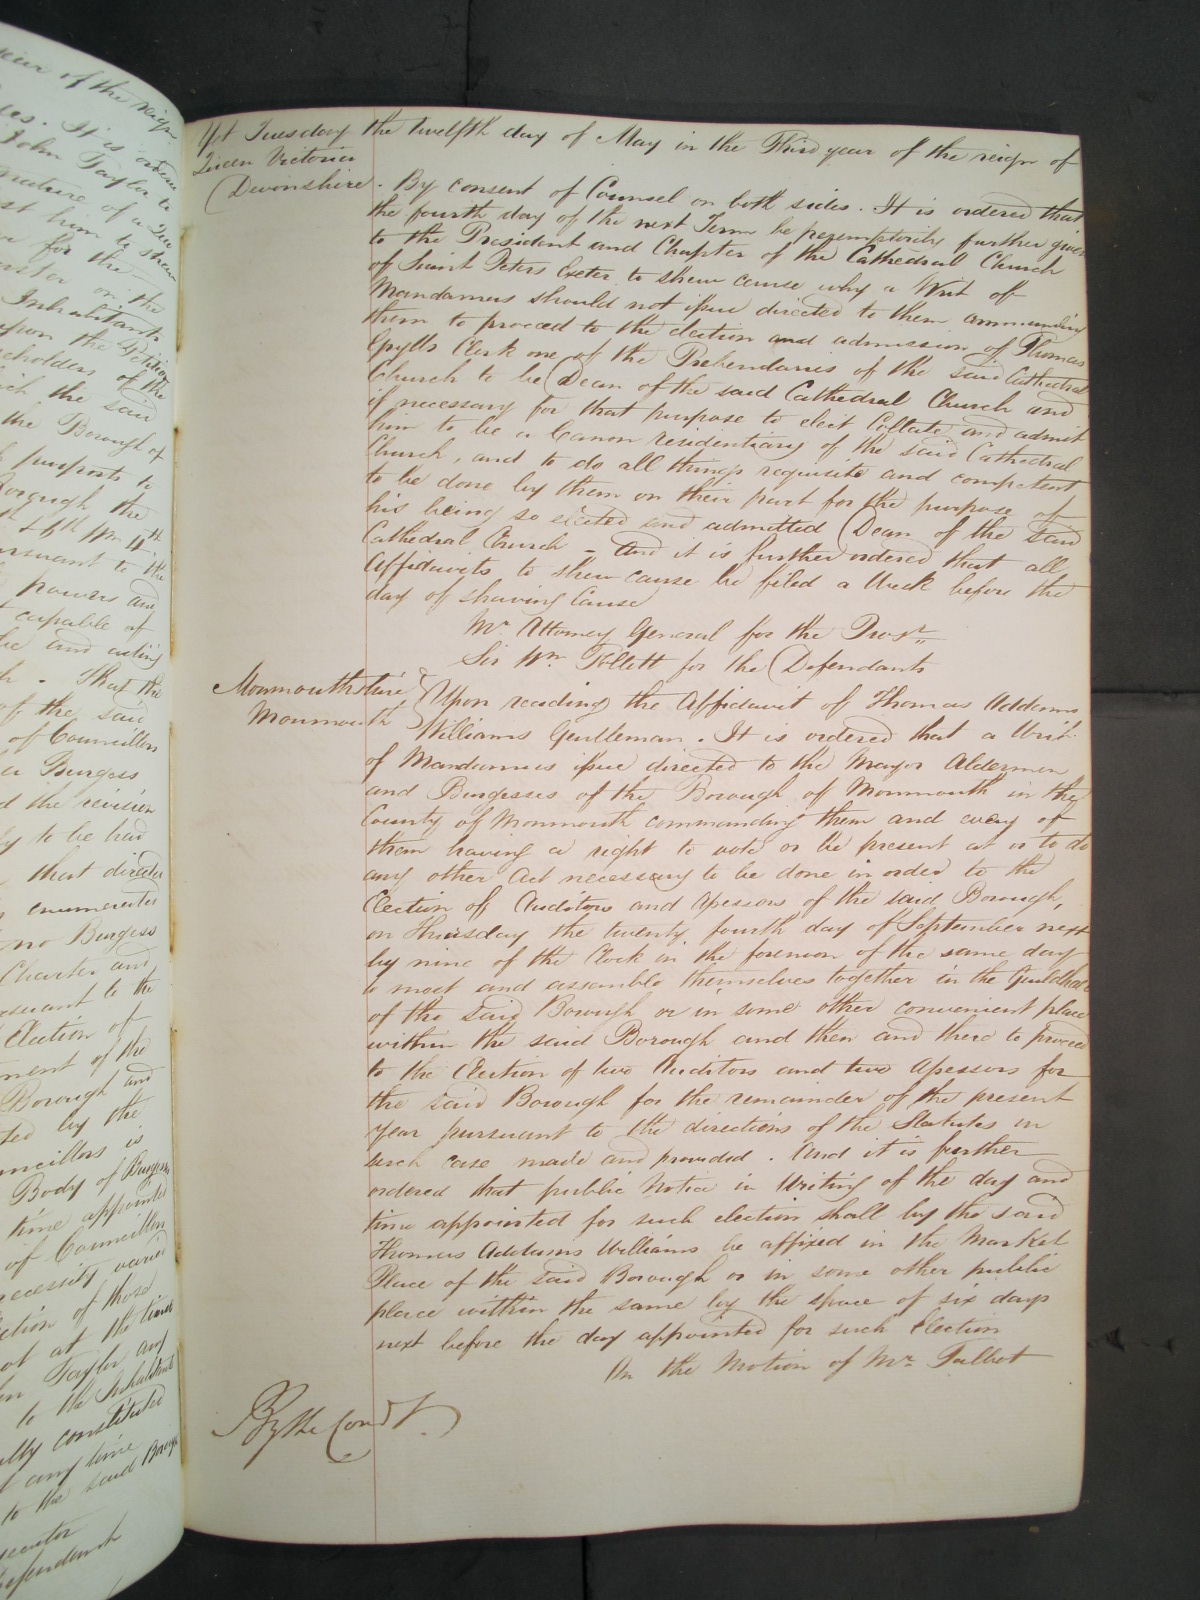 year of the reign
It is ordered
John Taylor to
nature of a Quo
him to shew
for the
on the
Inhabitants
upon the Petition
householders of the
which the said
the Borough of
purports to
Borough the
5th & 6th Wm 4th
pursuant to the
powers and
capable of
and acting
That the
of the said
of Councillors
a Burgess
the revision
to be had
that directed
enumerated
no Burgess
Charter and
pursuant to the
Election of
of the
Borough and
by the
Councillors is
Body of Burgesses
time appointed
of Councillors
necessity varied
Election of those
not at the times
Taylor any
to the Inhabitants
constituted
any time
to the said Borough
Defendants
Yet Tuesday the twelfth day of May in the Third year of the reign of
Queen Victoria
Devonshire. By consent of Counsel on both sides. It is ordered that
the fourth day of the next Term be peremptorily further given
to the President and Chapter of the Cathedral Church
of Saint Peters Exeter to shew cause why a Writ of
Mandamus should not issue directed to them commanding
them to proceed to the election and admission of Thomas
Grylls Clerk one of the Prebendaries of the said Cathedral
Church to be Dean of the said Cathedral Church and
if necessary for that purpose to elect Collate and admit
him to be a Canon residentiary of the said Cathedral
Church, and to do all things requisite and competent
to be done by them on their part for the purpose of
his being so elected and admitted Dean of the said
Cathedral Church - And it is further ordered that all
Affidavits to shew cause be filed a Week before the
day of shewing Cause
Mr. Attorney General for the Prosr.
Sir Wm. Follett for the Defendants
Monmouthshire } Upon reading the Affidavit of Thomas Addams
Monmouth Williams Gentleman. It is ordered that a Writ
of Mandamus issue directed to the Mayor Aldermen
and Burgesses of the Borough of Monmouth in the
County of Monmouth commanding them and every of
them having a right to vote or be present at or to do
any other Act necessary to be done in order to the
Election of Auditors and Assessors of the said Borough,
on Thursday the twenty fourth day of September next
by nine of the Clock in the forenoon of the same day
to meet and assemble themselves together in the Guildhall
of the said Borough or in some other convenient place
within the said Borough and then and there to proceed
to the Election of two Auditors and two Assessors for
the said Borough for the remainder of the present
year pursuant to the directions of the Statutes in
such case made and provided. And it is further
ordered that public Notice in Writing of the day and
time appointed for such election shall by the said
Thomas Addams Williams be affixed in the Market
Place of the said Borough or in some other public
place within the same by the space of six days
next before the day appointed for such Election
On the Motion of Mr. Talbot
By the Court.